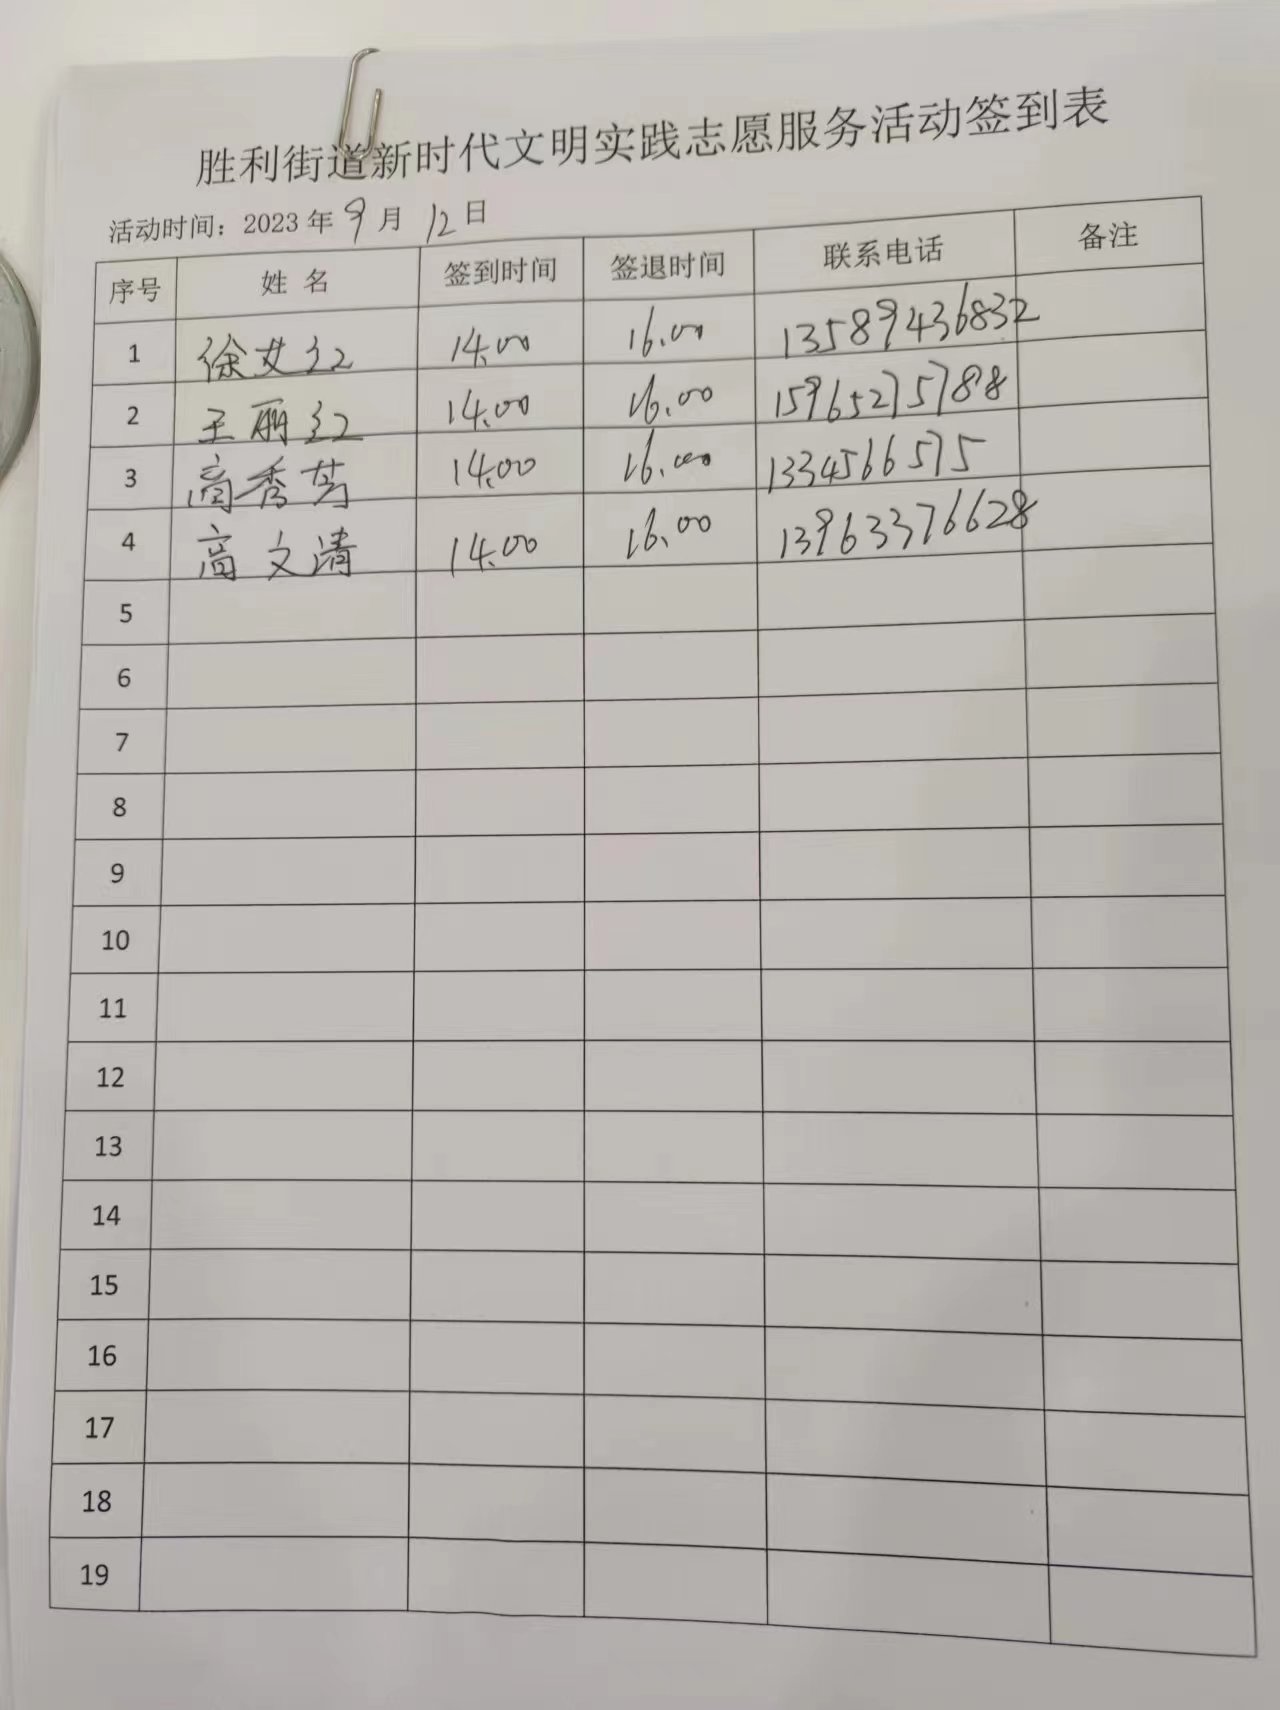 胜利街道新时代文明实践志愿服务活动签到表
活动时间：2023年9月12日
序号 姓名 签到时间 签退时间 联系电话 备注
1 徐艾红 14.00 16.00 13589436832
2 王丽红 14.00 16.00 15965275788
3 高秀芳 14.00 16.00 1334566575
4 高文清 14.00 16.00 13963376628
5
6
7
8
9
10
11
12
13
14
15
16
17
18
19